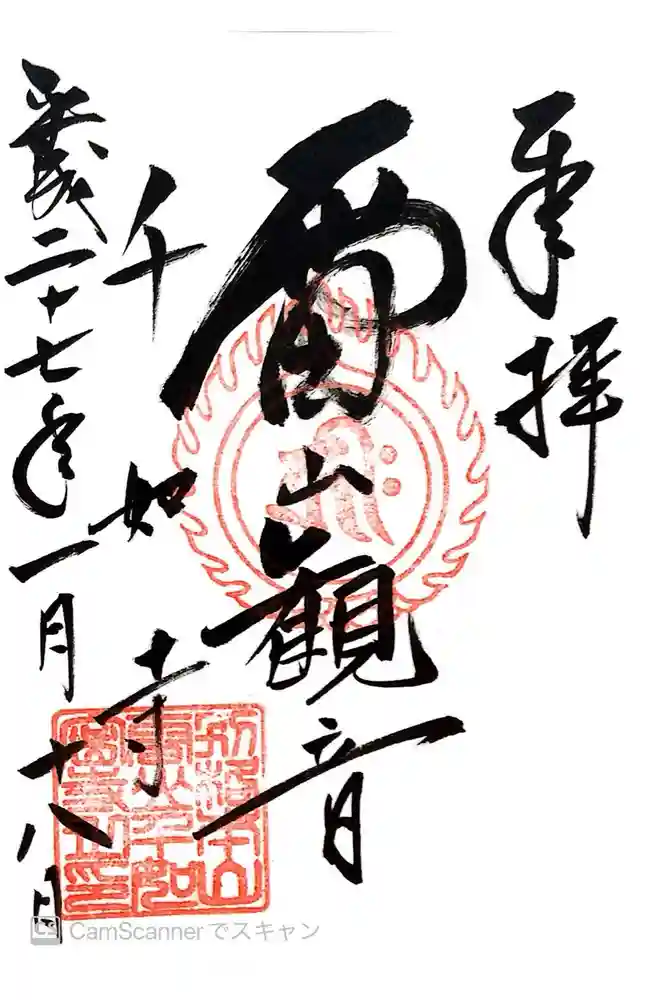 奉拝
雷山観音
千如寺
平成二十七年一月十八日
CamScannerでスキャン